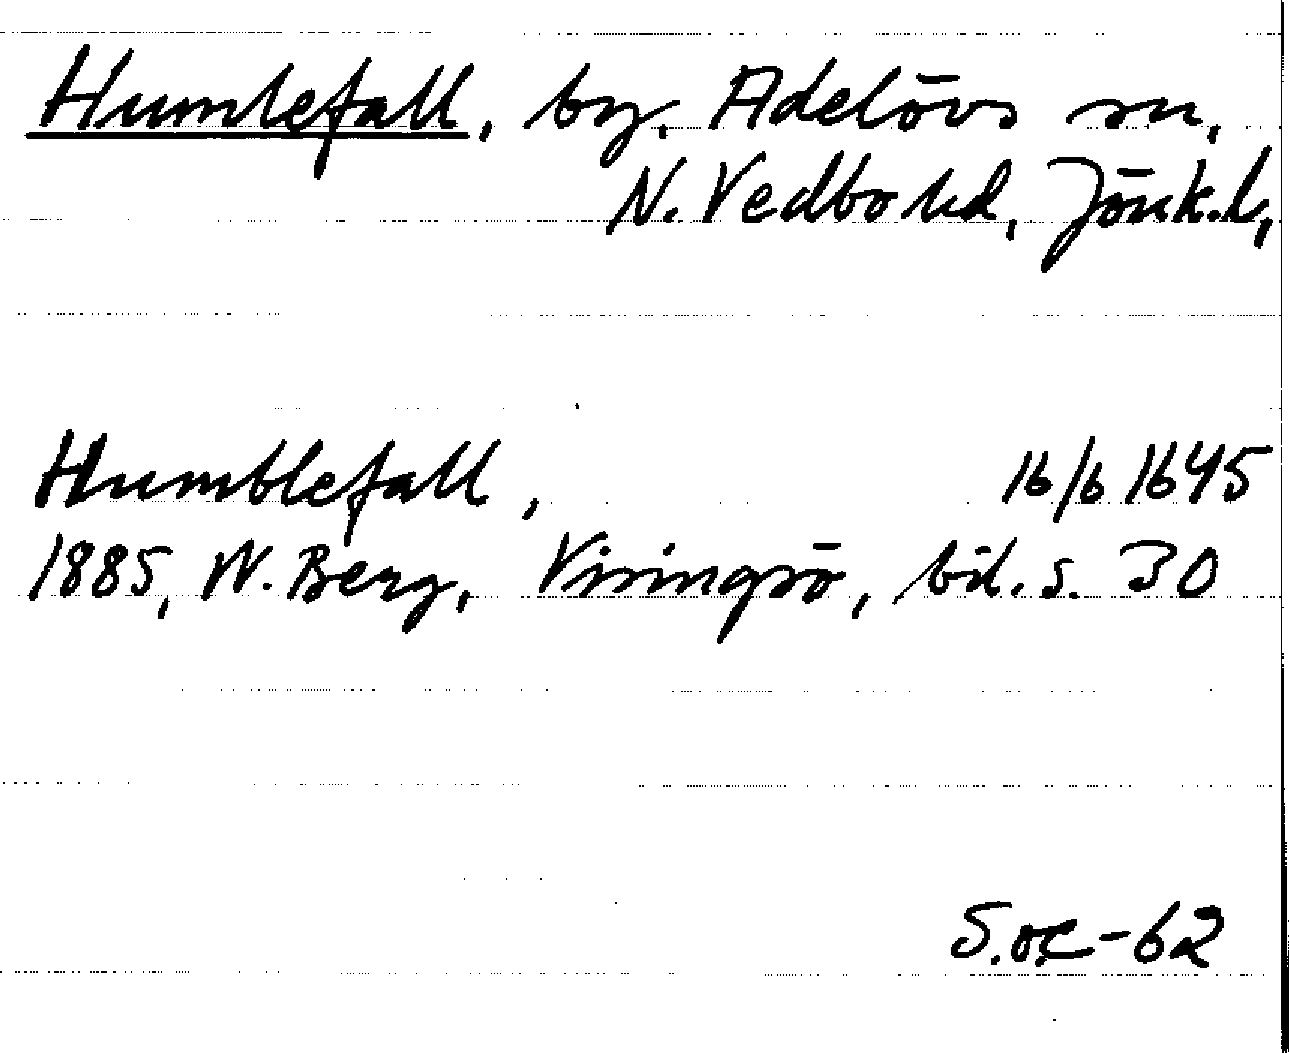 Humlefall, by, Adelövs sn,
N. Vedbo hd, Jönk. l,
Humblefall, 16/6 1645
1885, W. Berg, Visingsö, bil. s. 30
S.oc -62